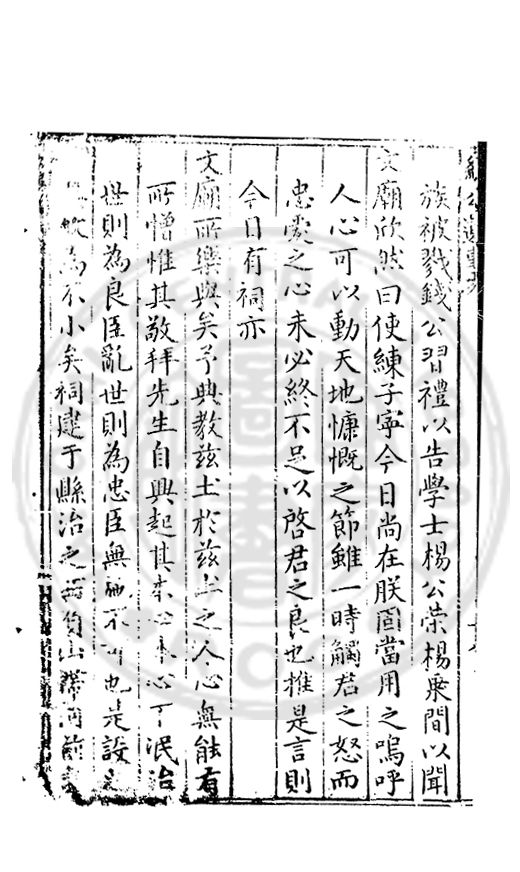 族被戮錢公習禮以告學士楊公榮楊乘間以聞
文廟欣然曰使練子寧今日尚在朕固當用之嗚呼
人心可以動天地慷慨之節雖一時觸君之怒而
忠愛之心未必終不足以啓君之良也推是言則
今日有祠亦
文廟所樂與矣予典教茲土於茲土之人心無能有
所增惟其敬拜先生自興起其本心本心不泯治
世則為良臣亂世則為忠臣無施不可也是設
為不小矣祠建于縣治之西負山帶河前